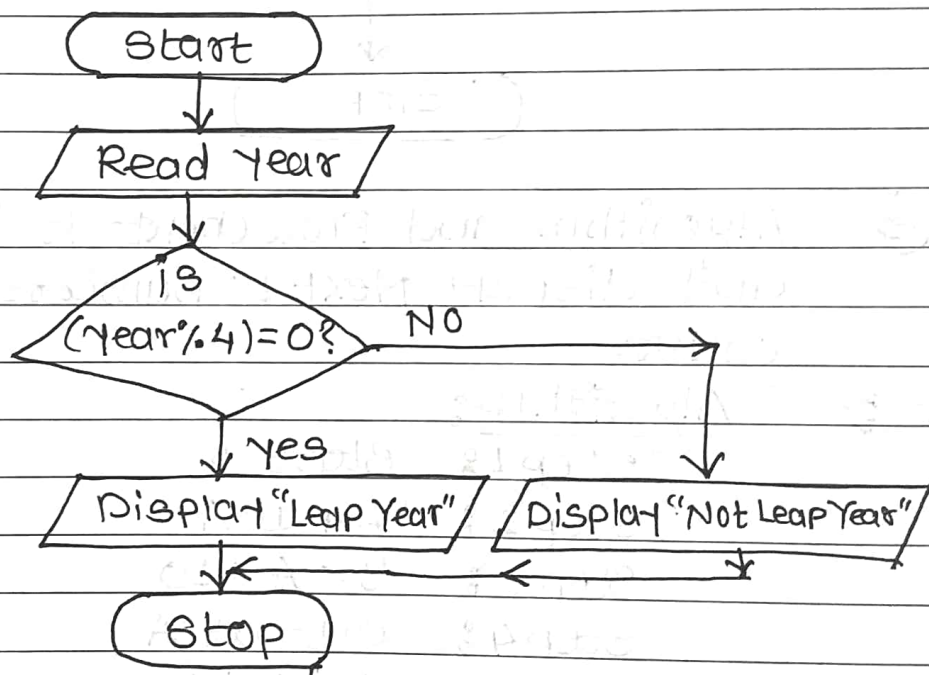 Start
Read Year
is
(year%4)=0?
NO
yes
Display "Leap Year"
Display "Not Leap Year"
Stop